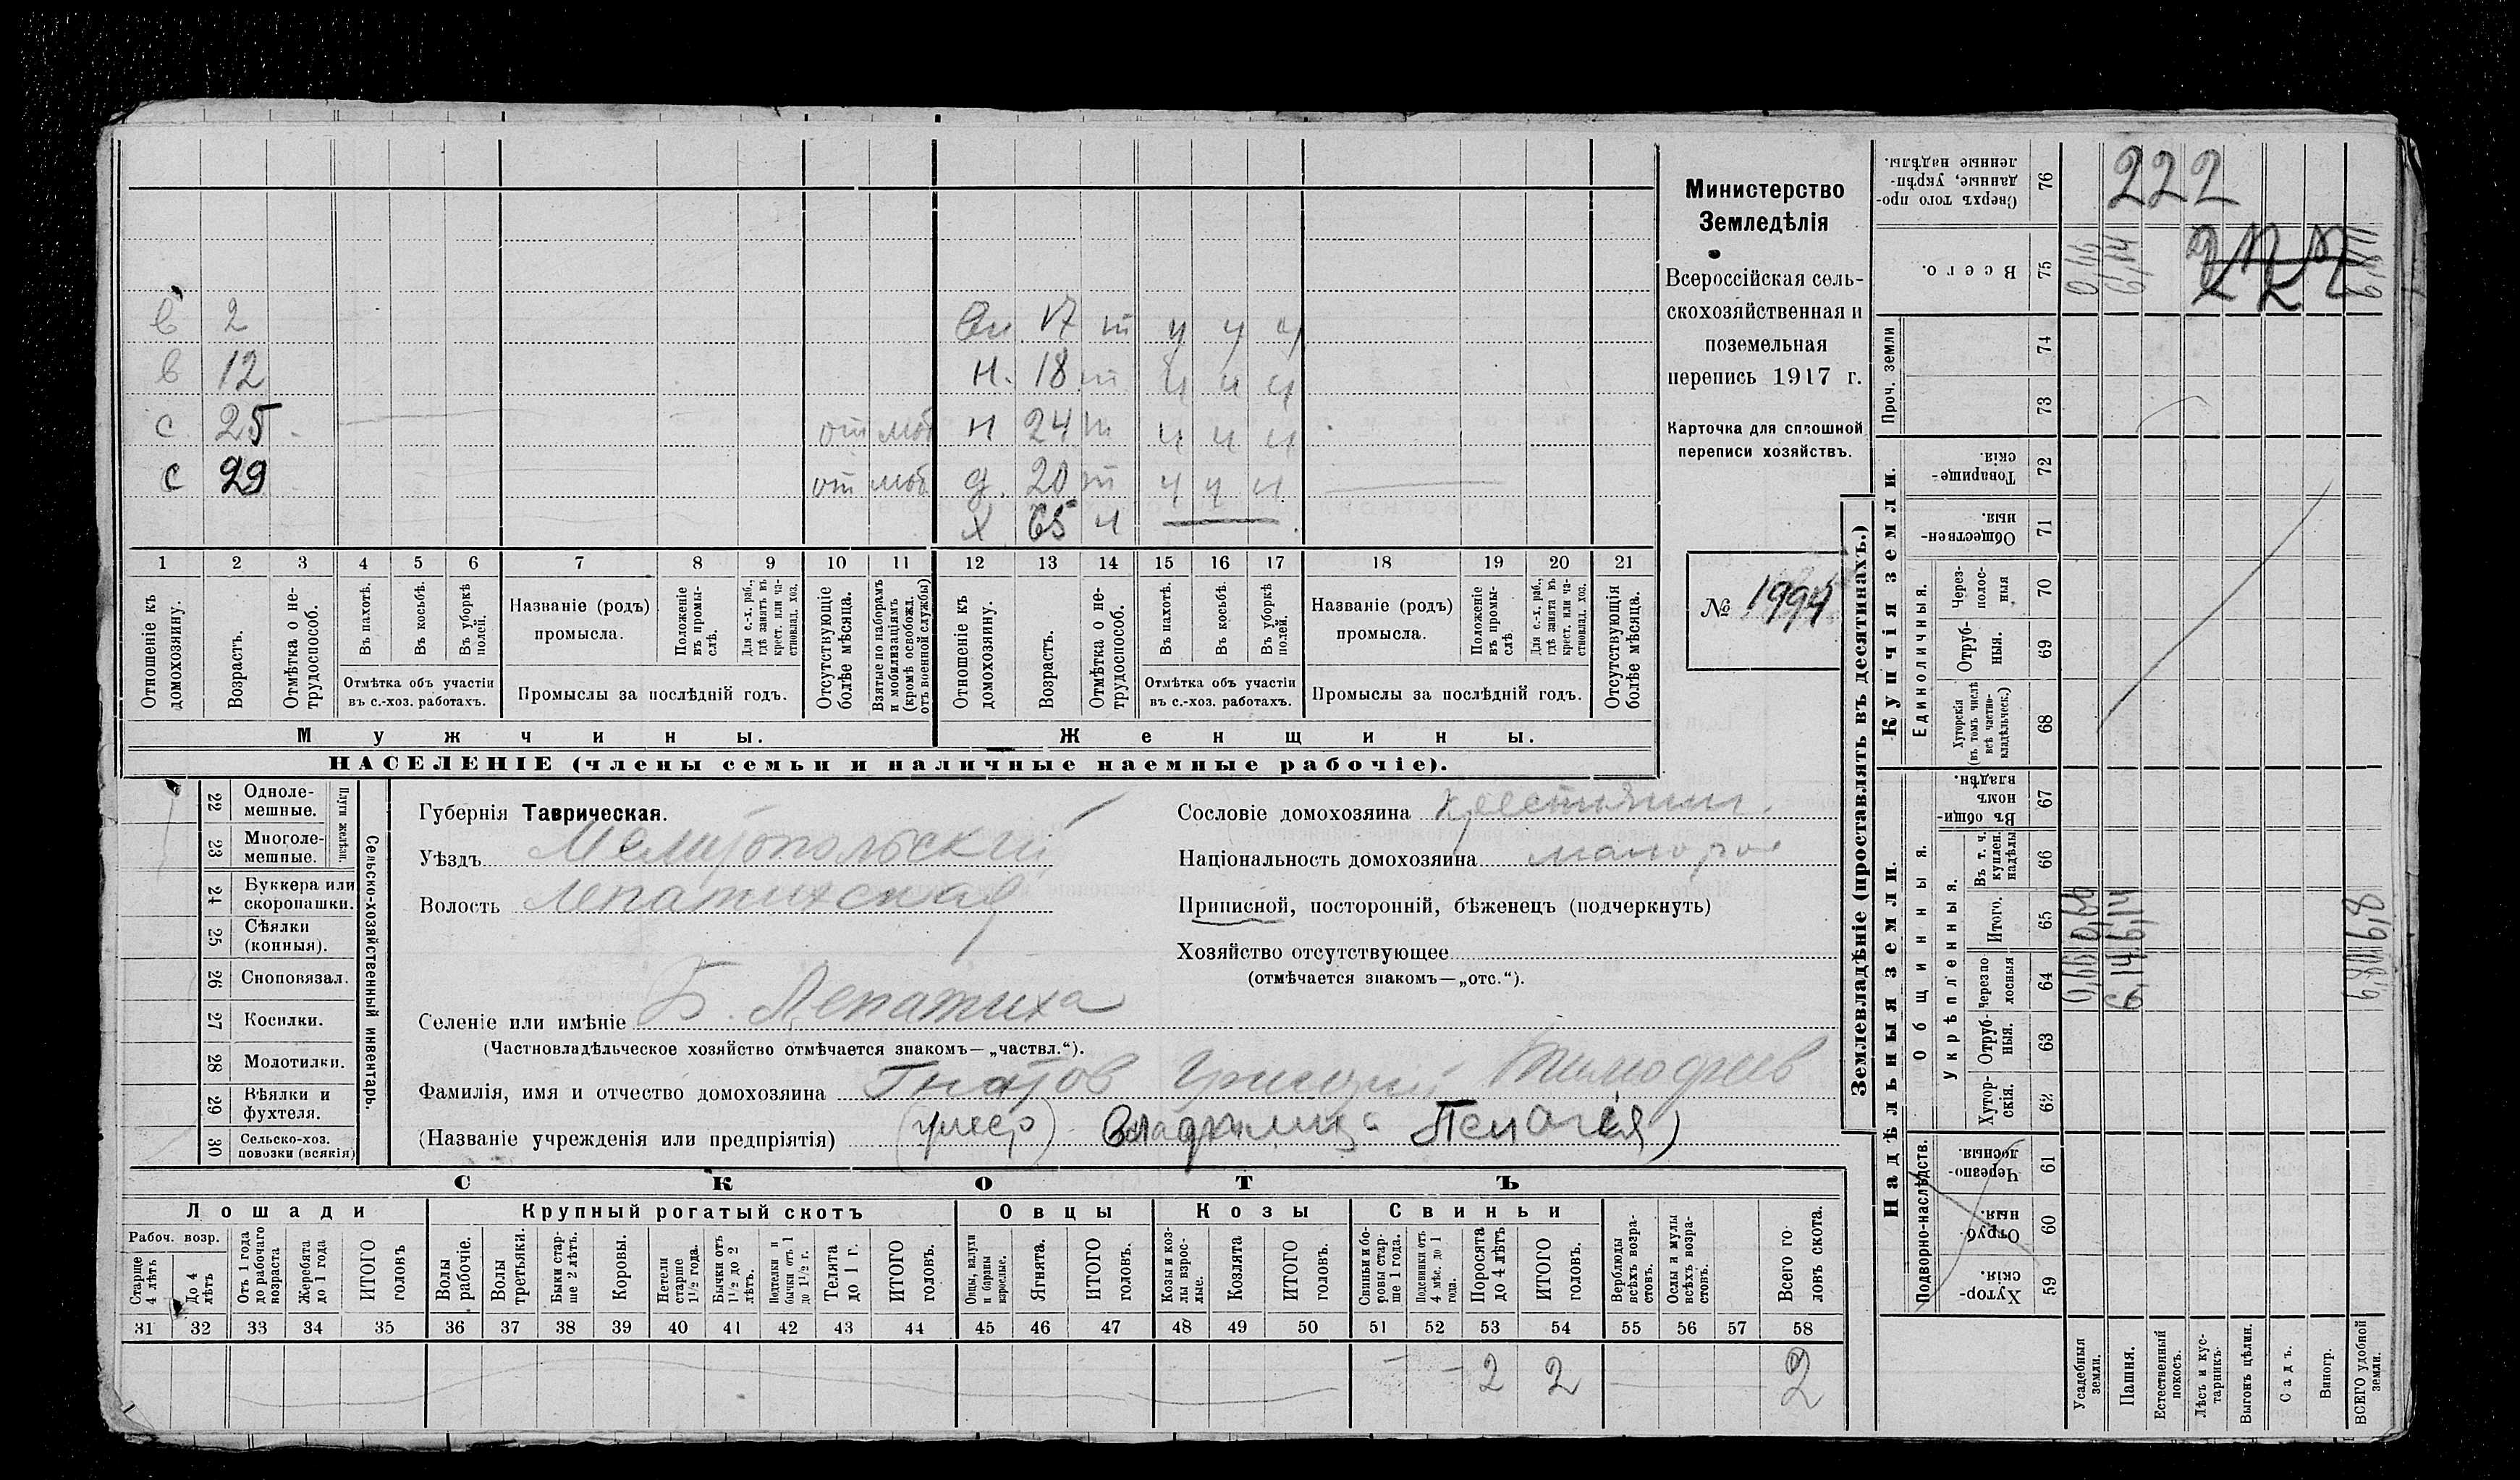 в 2 17 т ч ч ч
в 12 н. 18 т ч ч ч
с 25 от моб н 24 т ч ч ч
с 29 от моб д. 20 т ч ч ч
х 65 ч
1 2 3 4 5 6 7 8 9 10 11 12 13 14 15 16 17 18 19 20 21
Отношеніе къ домохозяину.
Возрастъ.
Отмѣтка о не-трудоспособ.
Въ пахотѣ.
Въ косьбѣ.
Въ уборкѣ полей.
Отмѣтка объ участіи
въ с.-хоз. работахъ.
Названіе (родъ)
промысла.
Положеніе въ промы-слѣ.
Для с.-х. раб., гдѣ занятъ въ крест. или ча-стновлад. хоз.
Промыслы за послѣдній годъ.
Отсутствующіе болѣе мѣсяца.
Взятые по наборамъ и мобилизаціямъ (кромѣ освобожд. отъ военной службы)
Отношеніе къ домохозяину.
Возрастъ.
Отмѣтка о не-трудоспособ.
Въ пахотѣ.
Въ косьбѣ.
Въ уборкѣ полей.
Отмѣтка объ участіи
въ с.-хоз. работахъ.
Названіе (родъ)
промысла.
Положеніе въ промы-слѣ.
Для с.-х. раб., гдѣ занята въ крест. или ча-стновлад. хоз.
Промыслы за послѣдній годъ.
Отсутствующія болѣе мѣсяца.
Мужчины.
Женщины.
НАСЕЛЕНІЕ (члены семьи и наличные наемные рабочіе).
Министерство
Земледѣлія
Всероссійская сель-
скохозяйственная и
поземельная
перепись 1917 г.
Карточка для сплошной
переписи хозяйствъ.
№ 1994
22 Одноле-мешные.
23 Многоле-мешные.
Плуги желѣзн.
24 Буккера или скоропашки.
25 Сѣялки (конныя).
26 Сноповязал.
27 Косилки.
28 Молотилки.
29 Вѣялки и фухтеля.
30 Сельско-хоз. повозки (всякія)
Сельско-хозяйственный инвентарь.
Губернія Таврическая.
Уѣздъ Мелитопольский
Волость Лепатихская
Селеніе или имѣніе Б. Лепатиха
(Частновладѣльческое хозяйство отмѣчается знакомъ—„частвл.“).
Фамилія, имя и отчество домохозяина Гнатов Григорий Тимофеев
(Названіе учрежденія или предпріятія) (умер) Владилица Пелагія)
Сословіе домохозяина крестьянин.
Національность домохозяина малорос
Приписной, посторонній, бѣженецъ (подчеркнуть)
Хозяйство отсутствующее
(отмѣчается знакомъ—„отс.“).
СКОТЪ
Лошади
Крупный рогатый скотъ
Овцы
Козы
Свиньи
Рабоч. возр.
Старше 4 лѣтъ
До 4 лѣтъ
Отъ 1 года до рабочаго возраста
Жеребята до 1 года
ИТОГО головъ
Волы рабочіе.
Волы третьяки.
Быки стар-ше 2 лѣтъ.
Коровы.
Нетели старше 1½ года.
Бычки отъ 1½ до 2 лѣтъ.
Подтелки и бычки отъ 1 до 1½ г.
Телята до 1 г.
ИТОГО головъ.
Овцы, валухи и бараны взрослые.
Ягнята.
ИТОГО головъ.
Козы и коз-лы взрос-лые.
Козлята
ИТОГО головъ.
Свиньи и бо-ровы стар-ше 1 года.
Подсвинки отъ 4 мѣс. до 1 года.
Поросята до 4 лѣтъ
ИТОГО головъ.
Верблюды всѣхъ возра-стовъ.
Ослы и мулы всѣхъ возра-стовъ.
Всего го-ловъ скота.
31 32 33 34 35 36 37 38 39 40 41 42 43 44 45 46 47 48 49 50 51 52 53 54 55 56 57 58
2 2 2
Землевладѣніе (проставлять въ десятинахъ.)
Надѣльныя земли.
Купчія земли.
Проч. земли
Подворно-наслѣдств.
Общинныя
Укрѣпленныя.
Единоличныя.
Сверхъ того про-данные, укрѣп-ленные надѣлы. 76 222
Всего. 75 0,66 6,14 6,80
74
73
Товарище-скія. 72
Обществен-ныя. 71
Через-полос-ныя 70
Отруб-ныя. 69
Хуторскія (въ томъ числѣ всѣ частно-владѣльческ.) 68
Въ общин-номъ владѣн. 67
Въ т. ч. куплен. надѣлы 66
Итого. 65 0,66 6,14 6,8
Черезпо-лосныя 64 0,66 6,14 6,80
Отруб-ныя. 63
Хутор-скія. 62
Черезпо-лосныя. 61
Отруб-ныя. 60
Хутор-скія. 59
Усадебныя земли.
Пашня.
Естественный покосъ.
Лѣсъ и кус-тарникъ.
Выгонъ цѣлин.
Садъ.
Виногр.
ВСЕГО удобной земли.